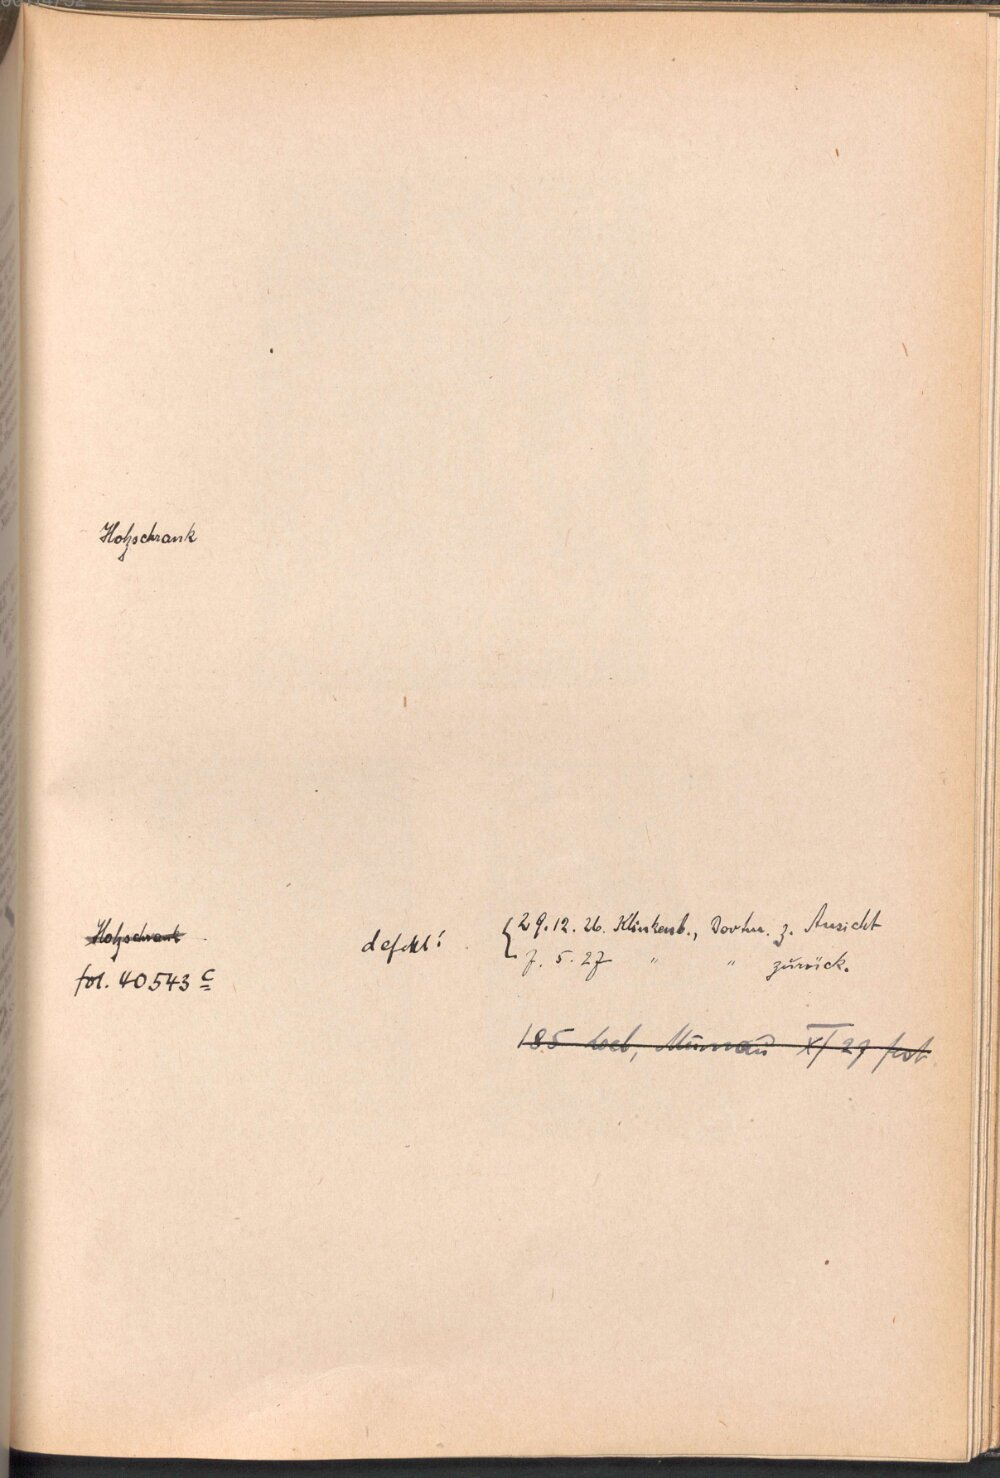 Holzschrank
Holzschrank
fol. 40543 c
defekt!
29.12.26. Klinkenb., Dorhn. z. Ansicht
7. 5. 27 " " zurück.
185 Loeb, Murnau XI 29 fest